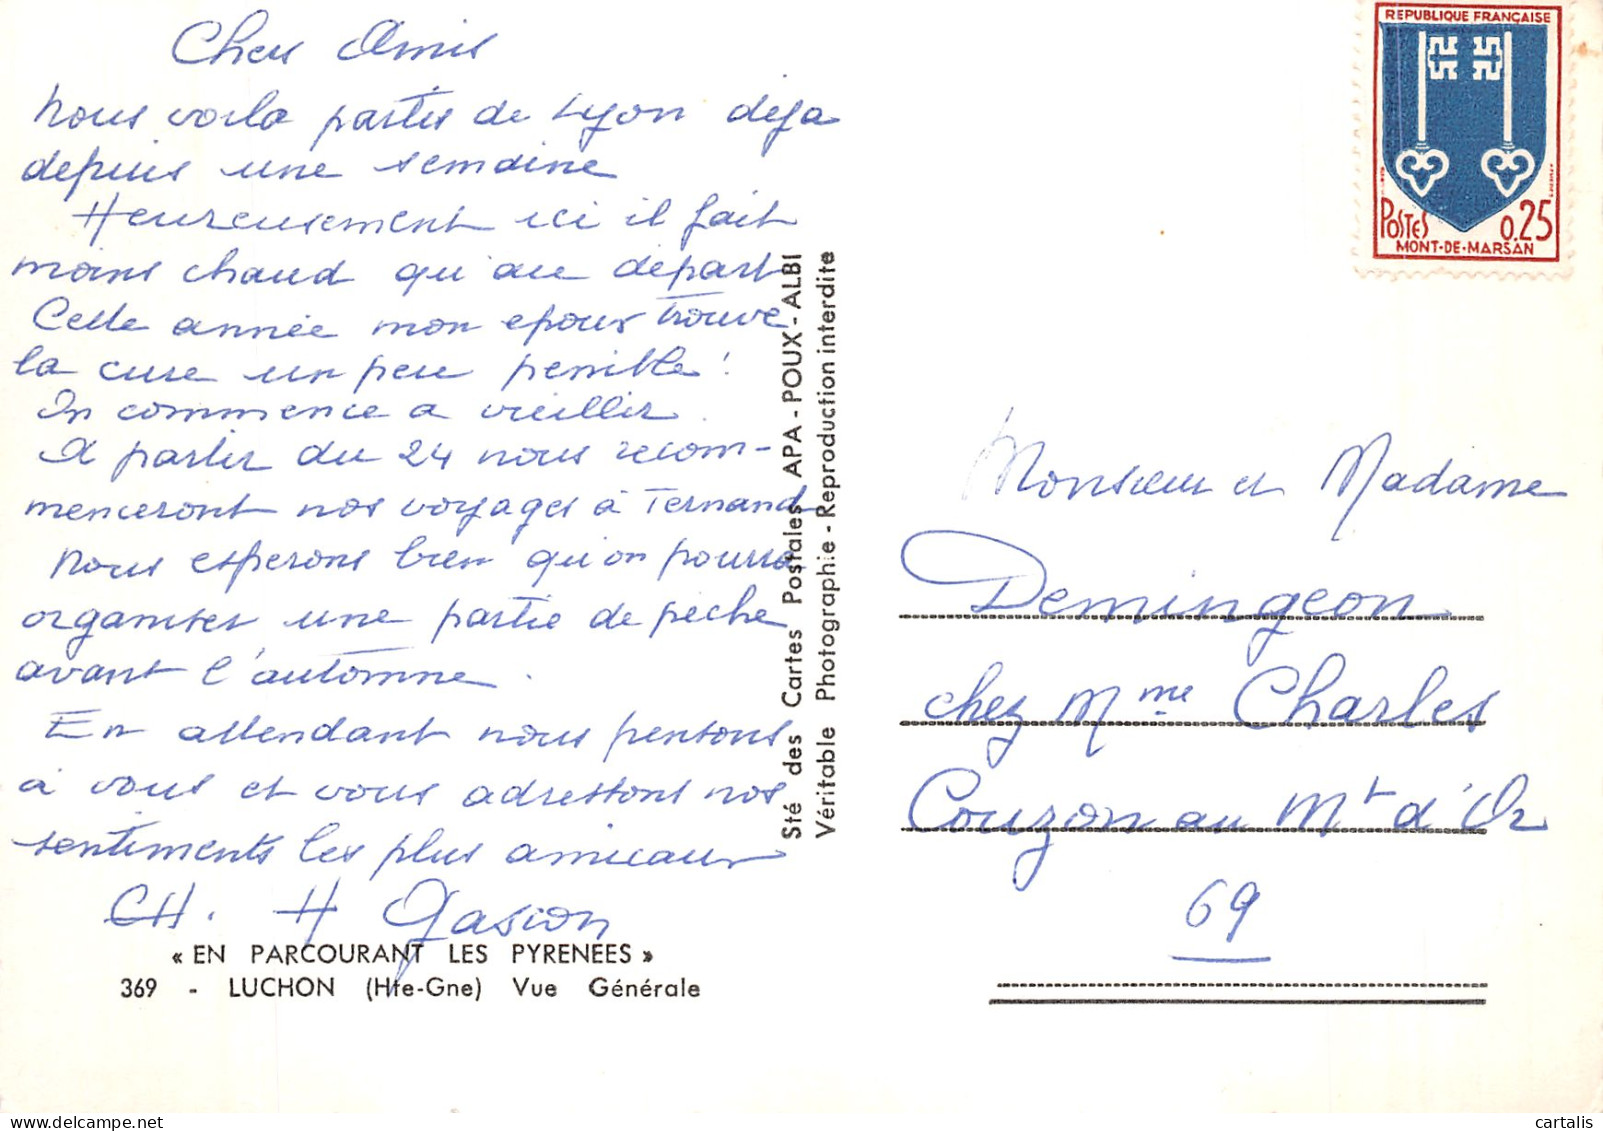 Chers Amis
Nous voila partis de Lyon deja
depuis une semaine
Heureusement ici il fait
moins chaud qu'au départ
Cette année mon epoux trouve
la cure un peu penible !
On commence a vieillir.
A partir du 24 nous recom-
menceront nos voyages à Ternand
Nous esperons bien qu'on pourra
organiser une partie de pêche
avant l'automne.
En attendant nous pensons
à vous et vous adressons nos
sentiments les plus amicaux
CH. H Gasion
« EN PARCOURANT LES PYRENEES »
369 - LUCHON (Hte-Gne) Vue Générale
Sté des Cartes Postales APA - POUX - ALBI
Véritable Photographie - Reproduction interdite
REPUBLIQUE FRANÇAISE
POSTES 0,25
MONT-DE-MARSAN
Monsieur et Madame
Demingeon
chez Mme Charles
Couzon au Mt d'Or
69
cartalis